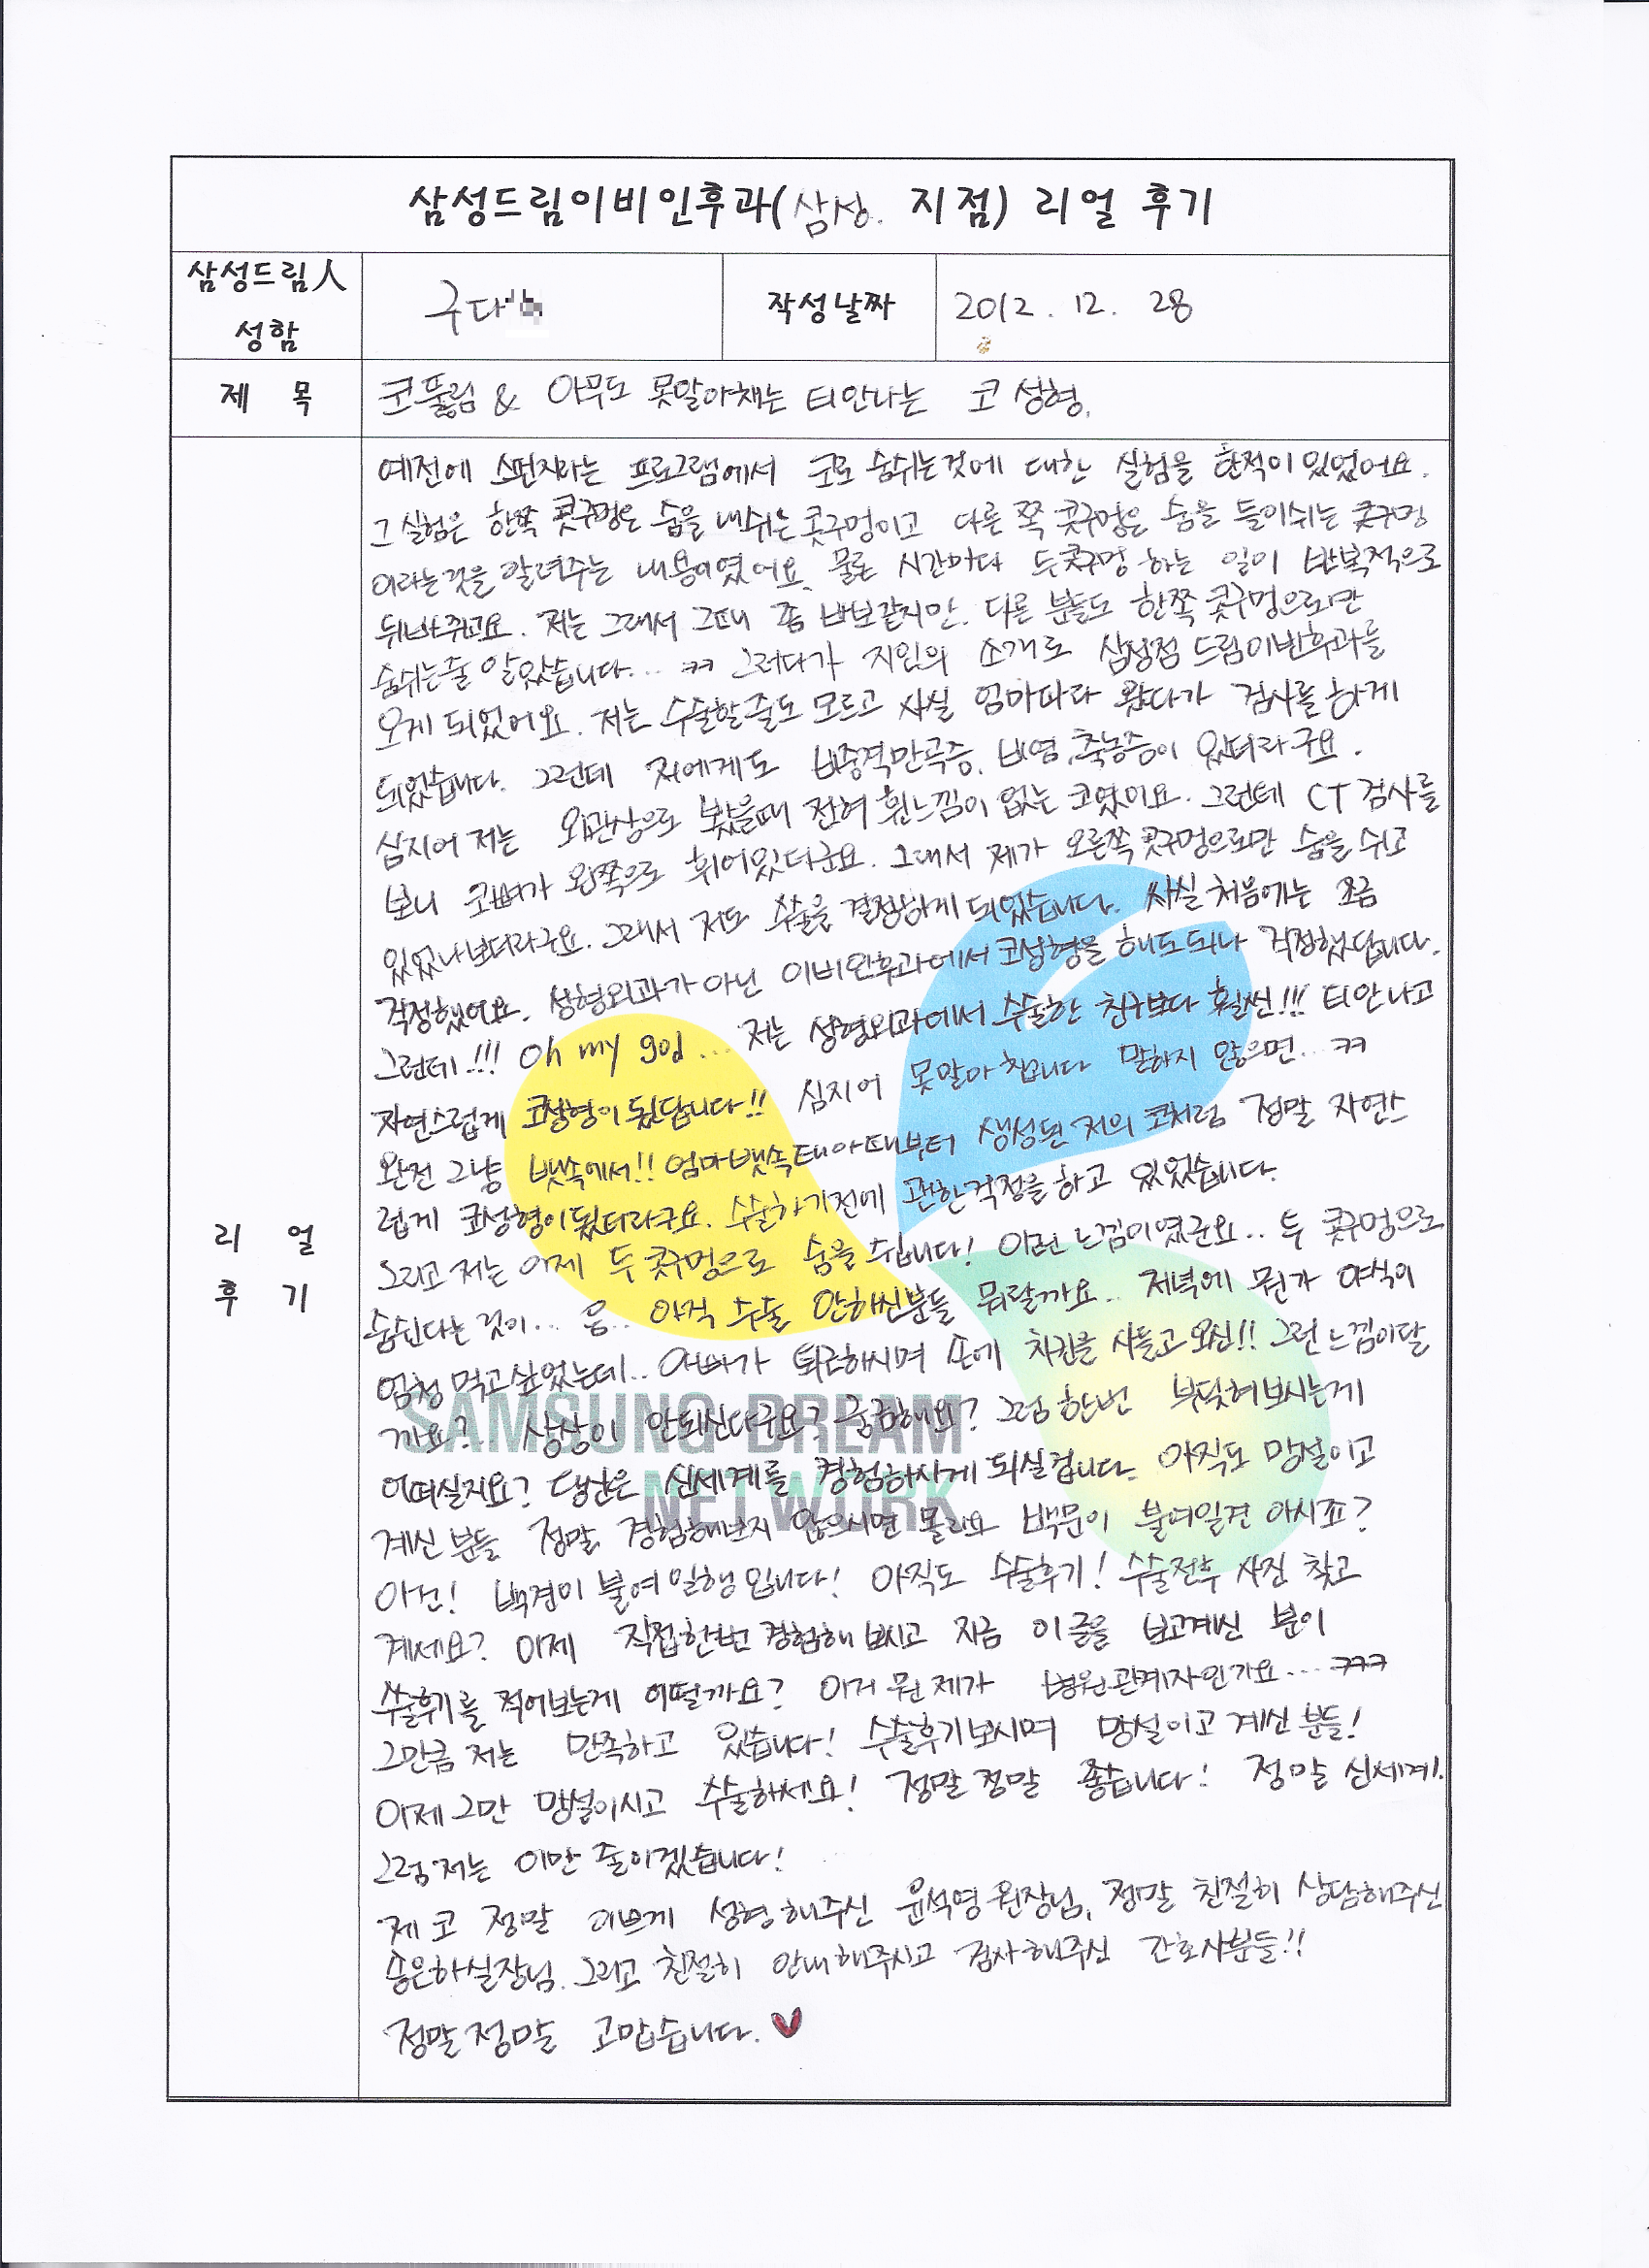 삼성드림이비인후과(삼성. 지점) 리얼 후기
삼성드림人 성함
구다
작성날짜
2012. 12. 28
제 목
코뚫림 & 아무도 못말아채는 티안나는 코 성형.
리 얼 후 기
예전에 스펀지라는 프로그램에서 코로 숨쉬는것에 대한 실험을 한적이 있었어요.
그 실험은 한쪽 콧구멍은 숨을 내쉬는 콧구멍이고 다른 쪽 콧구멍은 숨을 들이쉬는 콧구멍
이라는것을 알려주는 내용이였어요. 물론 시간마다 두콧구멍 하는 일이 반복적으로
뒤바뀌고요. 저는 그래서 그때 좀 바보같지만. 다른 분들도 한쪽 콧구멍으로만
숨쉬는줄 알았습니다... ㅋㅋ 그러다가 지인의 소개로 삼성점 드림이비인후과를
오게 되었어요. 저는 수술할줄도 모르고 사실 엄마따라 왔다가 검사를 하게
되었습니다. 그런데 저에게도 비중격만곡증, 비염, 축농증이 있더라구요.
심지어 저는 외관상으로 봤을때 전혀 휜느낌이 없는 코였어요. 그런데 CT 검사를
보니 코뼈가 왼쪽으로 휘어있더군요. 그래서 제가 오른쪽 콧구멍으로만 숨을 쉬고
있었나보더라구요. 그래서 저도 수술을 결정하게 되었습니다. 사실 처음에는 조금
걱정했어요. 성형외과가 아닌 이비인후과에서 코성형을 해도되나 걱정했답니다.
그런데!!! Oh my god... 저는 성형외과에서 수술한 친구보다 훨씬!!! 티안나고
자연스럽게 코성형이 됬답니다!! 심지어 못말아 챕니다 말하지 않으면... ㅋㅋ
완전 그냥 뱃속에서!! 엄마뱃속 태아때부터 생성된 저의 코처럼 정말 자연스
럽게 코성형이됬더라구요. 수술하기전에 괜한걱정을 하고 있었습니다.
그리고 저는 이제 두 콧구멍으로 숨을 쉽니다! 이런 느낌이였군요.. 두 콧구멍으로
숨쉰다는 것이... 음.. 아직 수술 안하신분들 뭐랄까요.. 저녁에 뭔가 야식이
엄청 먹고싶었는데.. 아빠가 퇴근하시며 손에 치킨을 사들고오신!! 그런 느낌이랄
까요?.. 상상이 안되신다구요? 궁금해요? 그럼 한번 부딪혀보시는게
어떠실지요? 당신은 신세계를 경험하시게 되실겁니다. 아직도 망설이고
계신 분들 정말 경험해보지 않으시면 몰라요 백문이 불여일견 아시죠?
아컨! 백견이 불여 일행 입니다! 아직도 수술후기! 수술전후 사진 찾고
계세요? 이제 직접한번 경험해 보시고 지금 이 글을 보고계신 분이
수술후기를 적어보는게 어떨까요? 이거 뭔 제가 병원관계자인가요... ㅋㅋㅋ
그만큼 저는 만족하고 있습니다! 수술후기보시며 망설이고 계신 분들!
이제 그만 망설이시고 수술하세요! 정말 정말 좋습니다! 정말 신세계!
그럼 저는 이만 줄이겠습니다!
제 코 정말 이쁘게 성형해주신 윤석영 원장님, 정말 친절히 상담해주신
송은하실장님. 그리고 친절히 안내해주시고 검사해주신 간호사분들!!
정말정말 고맙습니다.
SAMSUNG DREAM
NETWORK